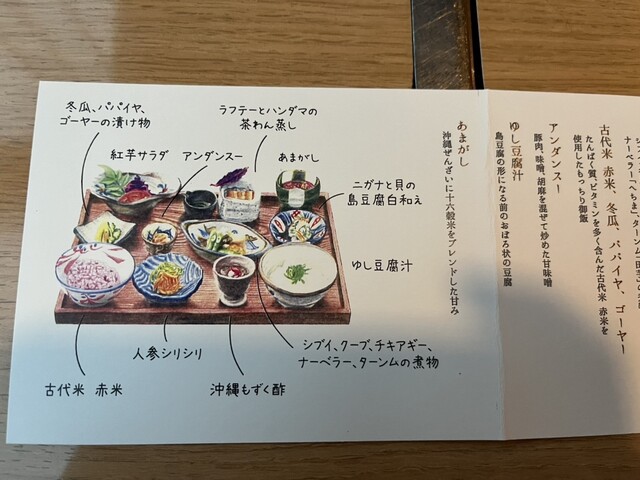 冬瓜、パパイヤ、
ゴーヤーの漬け物
ラフテーとハンダマの
茶わん蒸し
紅芋サラダ
アンダンスー
あまがし
ニガナと貝の
島豆腐白和え
ゆし豆腐汁
シブイ、クーブ、チキアギー、
ナーベラー、ターンムの煮物
人参シリシリ
古代米 赤米
沖縄もずく酢
古代米 赤米、冬瓜、パパイヤ、ゴーヤー
たんぱく質、ビタミンを多く含んだ古代米 赤米を
使用したもっちり御飯
アンダンスー
豚肉、味噌、胡麻を混ぜて炒めた甘味噌
ゆし豆腐汁
島豆腐の形になる前のおぼろ状の豆腐
あまがし
沖縄ぜんざいに十六穀米をブレンドした甘み